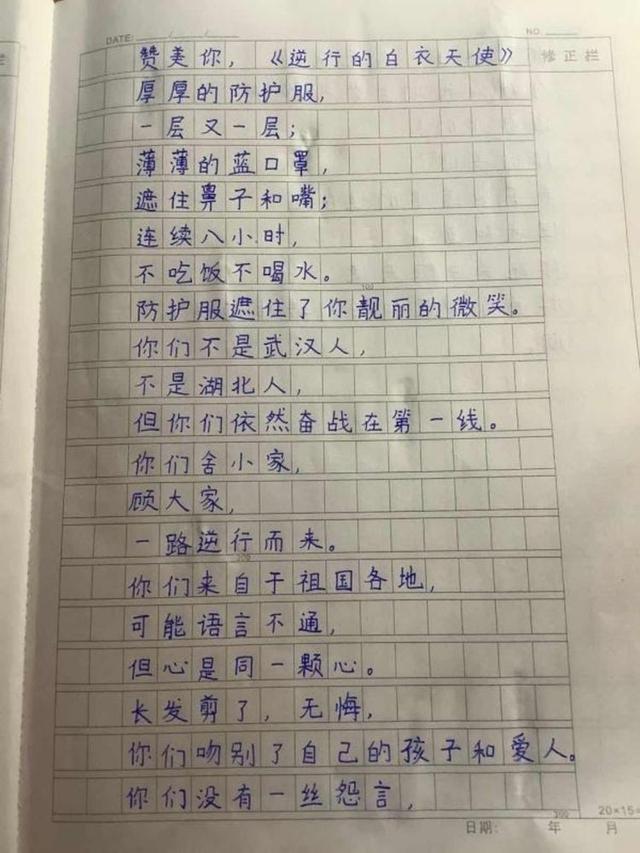 DATE: / /
NO.
赞美你，《逆行的白衣天使》
修正栏
厚厚的防护服，
一层又一层；
薄薄的蓝口罩，
遮住鼻子和嘴；
连续八小时，
不吃饭不喝水。
100
防护服遮住了你靓丽的微笑。
你们不是武汉人，
不是湖北人，
但你们依然奋战在第一线。
你们舍小家，
顾大家，
一路逆行而来。
200
你们来自于祖国各地，
可能语言不通，
但心是同一颗心。
长发剪了，无悔，
你们吻别了自己的孩子和爱人。
你们没有一丝怨言，
300
20×15=
日期： 年 月